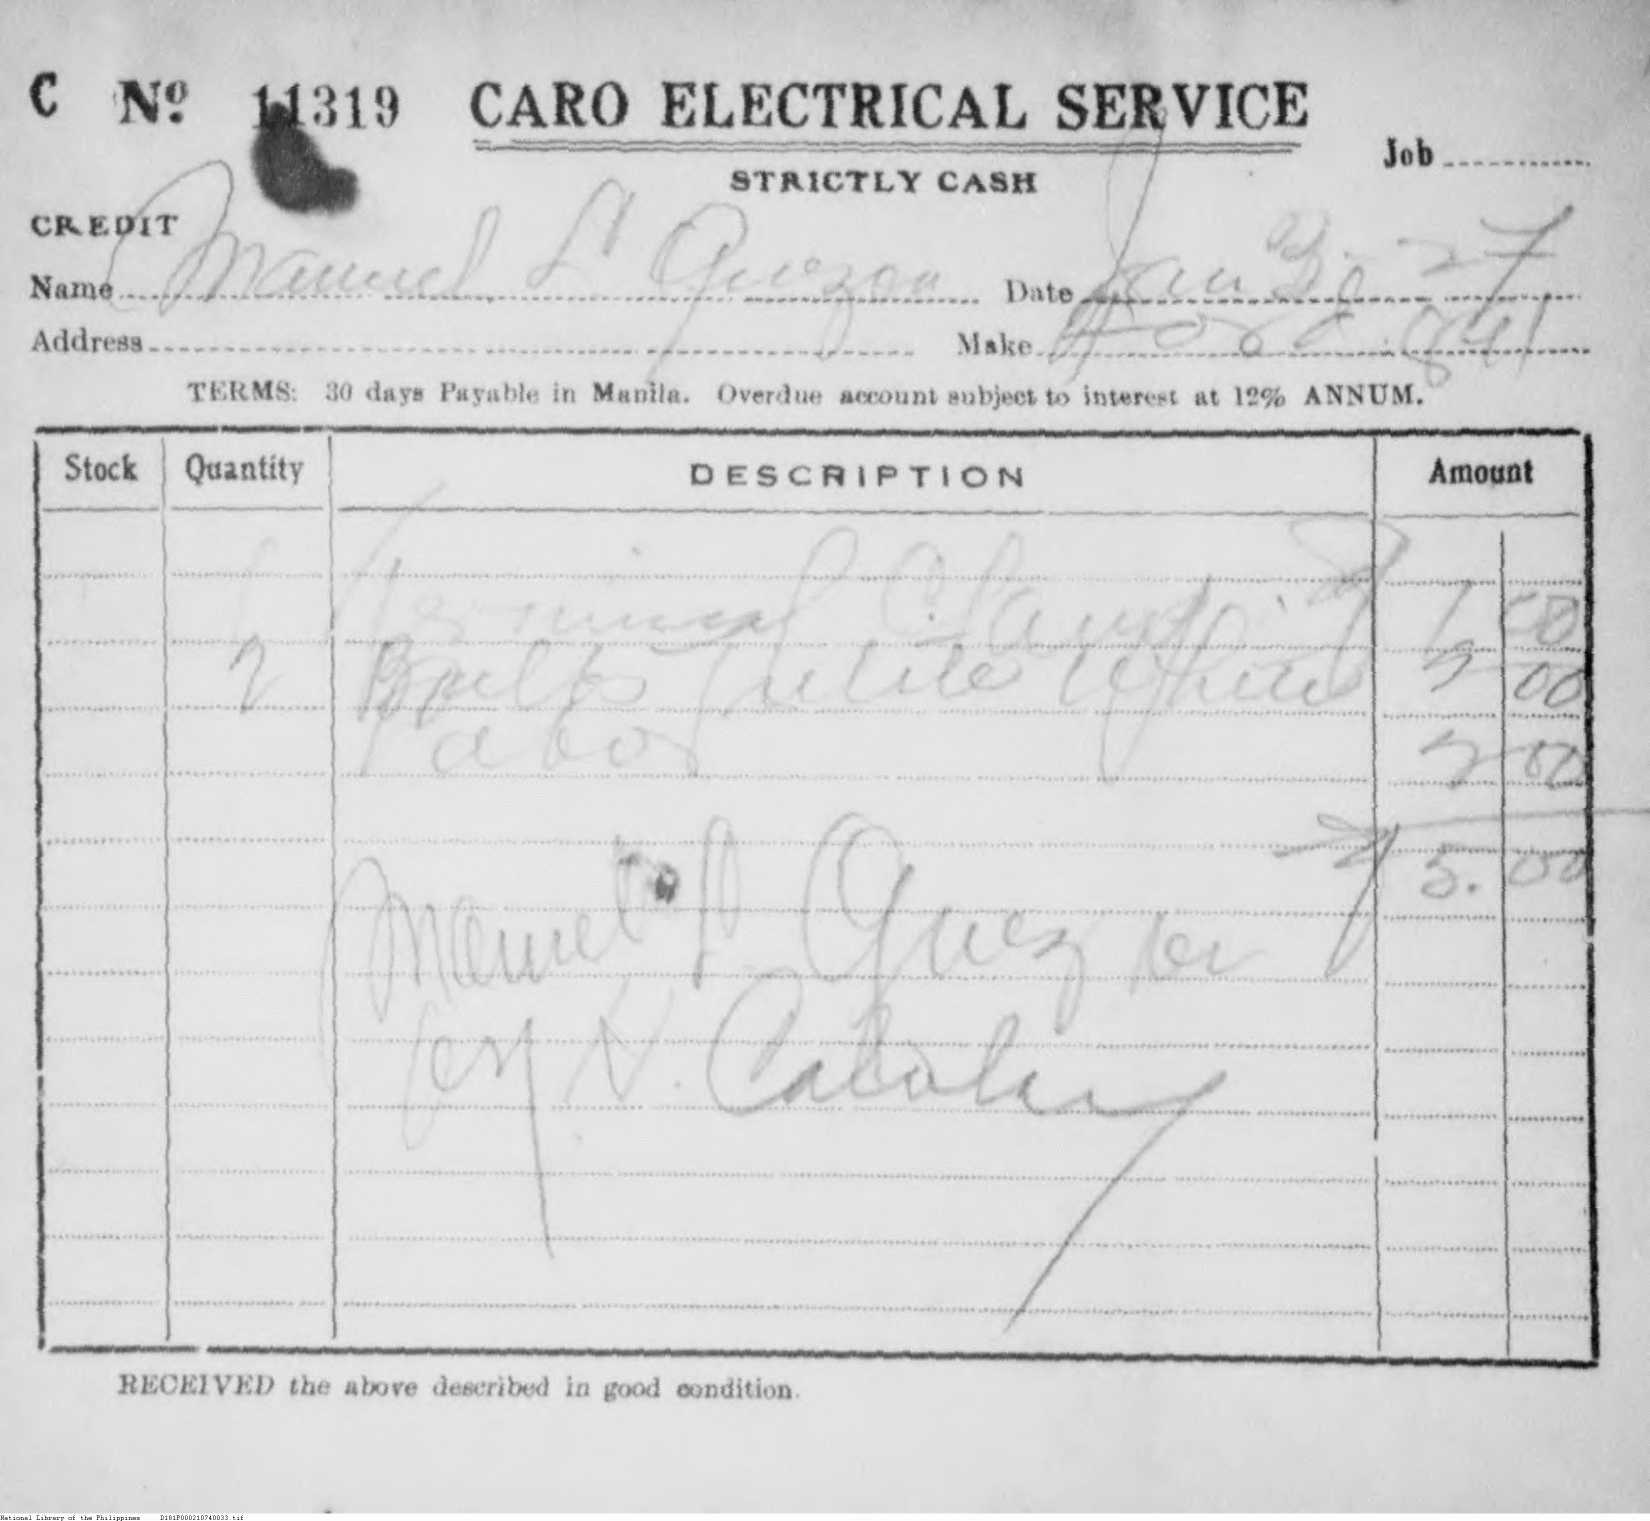 C No. 11319 CARO ELECTRICAL SERVICE
Job
STRICTLY CASH
CREDIT
Name Manuel L Quezon Date Jan 30 27
Address Make
TERMS: 30 days Payable in Manila. Overdue account subject to interest at 12% ANNUM.
Stock Quantity DESCRIPTION Amount
Terminal Clamp 1 00
2 Bulbs White 2 00
Labor 2 00
₱ 5.00
Manuel L Quezon
RECEIVED the above described in good condition.
National Library of the Philippines D181P000210740033.tif